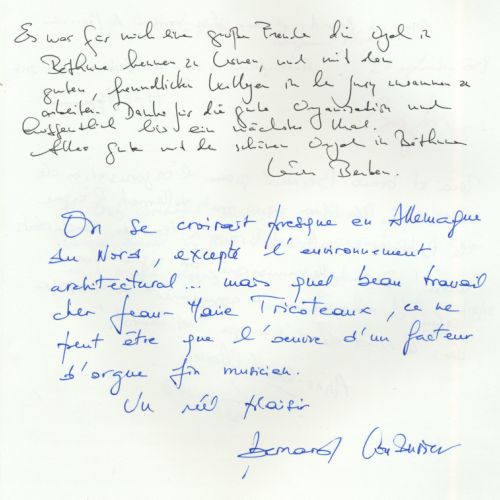 Es war für mich eine große Freude die Orgel in
Béthune kennen zu lernen, und mit den
guten, freundlichen Kollegen in der Jury zusammen zu
arbeiten. Danke für die gute Organisation und
hoffentlich bis ein nächstes Mal.
Alles gute mit der schönen Orgel in Béthune
On se croirait presque en Allemagne
du Nord, excepté l'environnement
architectural... mais quel beau travail
cher Jean-Marie Tricoteaux, ce ne
peut être que l'oeuvre d'un facteur
d'orgue fin musicien.
Un réel plaisir
Bernard